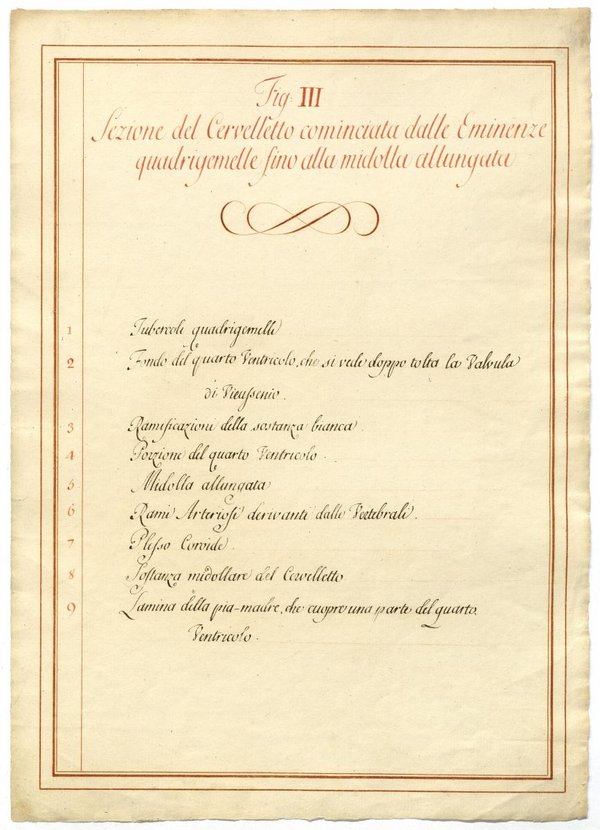 Fig. III
Sezione del Cervelletto cominciata dalle Eminenze
quadrigemelle fino alla midolla allungata
1 Tubercoli quadrigemelli
2 Fondo del quarto Ventricolo, che si vede doppo tolta la Valvula
di Vieussenio.
3 Ramificazioni della sostanza bianca.
4 Porzione del quarto Ventricolo.
5 Midolla allungata
6 Rami Arteriosi derivanti dalle Vertebrali.
7 Plesso Coroide.
8 Sostanza midollare del Cervelletto
9 Lamina della pia-madre, che cuopre una parte del quarto
Ventricolo.